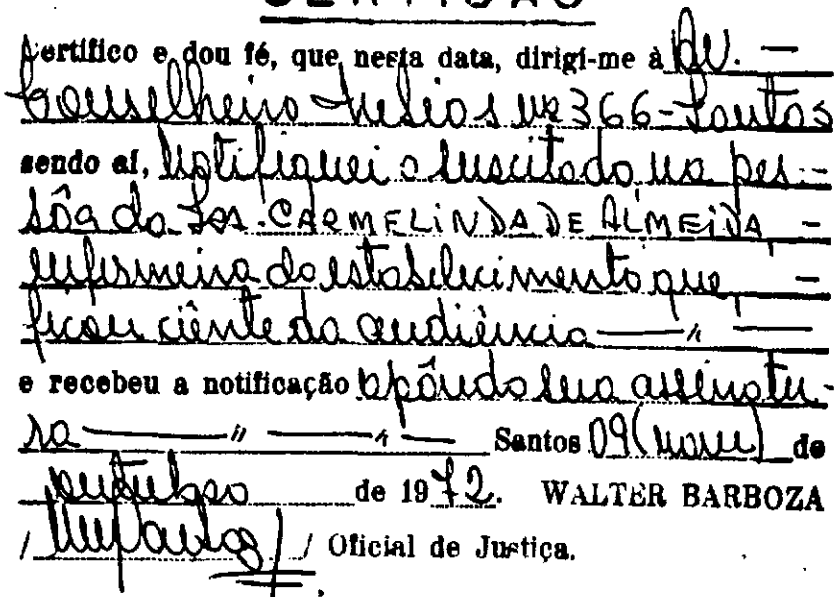 CERTIDÃO
Certifico e dou fé, que nesta data, dirigi-me à Av. —
Conselheiro Nebias nº 366 - Santos
sendo aí, Notifiquei o suscitado na pes-
sôa da Sra. CARMELINDA DE ALMEIDA, -
enfermeira do estabelecimento que, -
ficou ciênte da audiência — " —
e recebeu a notificação apôndo sua assinatu-
ra — " — " — Santos 09 (nove) de
outubro de 1972. WALTER BARBOZA
/ / Oficial de Justiça.